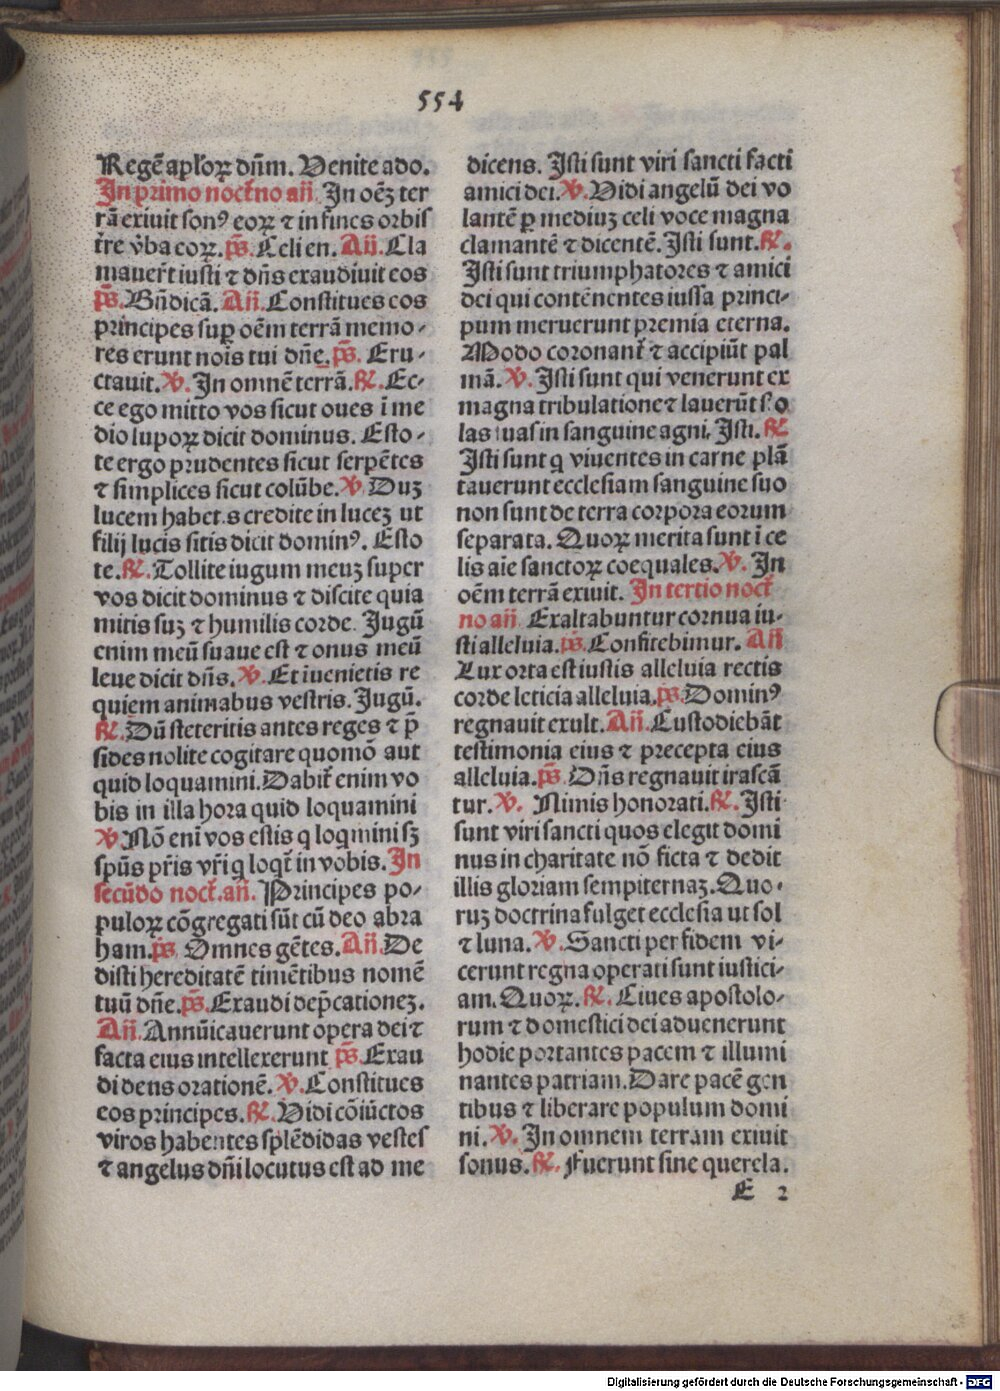 554
Regē apl'oꝝ dn̄m. Venite ado.
In primo noct̄no añ. In oēꝫ ter
rā exiuit sonꝰ eoꝝ ⁊ in fines orbis
t̄re v̄ba eoꝝ. ps̄. Celi en. Añ. Cla
mauer̄t iusti ⁊ dn̄s exaudiuit eos
ps̄. Bn̄dicā. Añ. Constitues eos
principes suꝑ oēm terrā memo-
res erunt nois̄ tui dn̄e. ps̄. Eru-
ctauit. ℣. In omnē terrā. ℟. Ec-
ce ego mitto vos sicut oues ī me
dio lupoꝝ dicit dominus. Esto-
te ergo prudentes sicut serpētes
⁊ simplices sicut colūbe. ℣. Duꝫ
lucem habet.s credite in luceꝫ ut
filij lucis sitis dicit dominꝰ. Esto
te. ℟. Tollite iugum meuꝫ super
vos dicit dominus ⁊ discite quia
mitis suꝫ ⁊ humilis corde. Jugū
enim meū suaue est ⁊ onus meū
leue dicit dn̄s. ℣. Et īuenietis re
quiem animabus vestris. Jugū.
℟. Dū steteritis antes reges ⁊ p̄
sides nolite cogitare quomō aut
quid loquamini. Dabit̄ enim vo
bis in illa hora quid loquamini
℣ Nō enī vos estis q loqmini sꝫ
spūs pr̄is vr̄i q loqt̄ in vobis. In
secūdo noct̄. añ. Principes po-
puloꝝ cōgregati sūt cū deo abra
ham. ps̄ Omnes gētes. Añ. De
disti hereditatē timētibus nomē
tuū dn̄e. ps̄. Exaudi dep̄cationeꝫ.
Añ. Annūicauerunt opera dei ⁊
facta eius intellexerunt ps̄. Exau
di deus orationē. ℣. Constitues
eos principes. ℟. Vidi cōiūctos
viros habentes splēdidas vestes
⁊ angelus dn̄i locutus est ad me
dicens. Isti sunt viri sancti facti
amici dei. ℣. Vidi angelū dei vo
lantē ꝑ mediuꝫ celi voce magna
clamantē ⁊ dicentē. Isti sunt. ℟.
Isti sunt triumphatores ⁊ amici
dei qui contēnentes iussa princi-
pum meruerunt premia eterna.
Modo coronant̄ ⁊ accipiūt pal
mā. ℣. Isti sunt qui venerunt ex
magna tribulatione ⁊ lauerūt s.o
las suas in sanguine agni. Isti. ℟
Isti sunt q viuentes in carne plā
tauerunt ecclesiam sanguine suo
non sunt de terra corpora eorum
separata. Quoꝝ merita sunt ī ce
lis aīe sanctoꝝ coequales. ℣. In
oēm terrā exiuit. In tertio noct̄
no añ Exaltabuntur cornua iu-
sti alleluia. ps̄. Confitebimur. Añ
Lux orta est iustis alleluia rectis
corde leticia alleluia. ps̄. Dominꝰ
regnauit exult. Añ. Custodiebāt
testimonia eius ⁊ precepta eius
alleluia. ps̄. Dn̄s regnauit irascā
tur. ℣. Nimis honorati. ℟. Isti
sunt viri sancti quos elegit domi
nus in charitate nō ficta ⁊ dedit
illis gloriam sempiternaꝫ. Quo-
ruꝫ doctrina fulget ecclesia ut sol
⁊ luna. ℣. Sancti per fidem vi-
cerunt regna operati sunt iustici-
am. Quoꝝ. ℟. Ciues apostolo-
rum ⁊ domestici dei aduenerunt
hodie portantes pacem ⁊ illumi
nantes patriam. Dare pacē gen
tibus ⁊ liberare populum domi
ni. ℣. In omnem terram exiuit
sonus. ℟. Fuerunt sine querela.
E 2
Digitalisierung gefördert durch die Deutsche Forschungsgemeinschaft - DFG